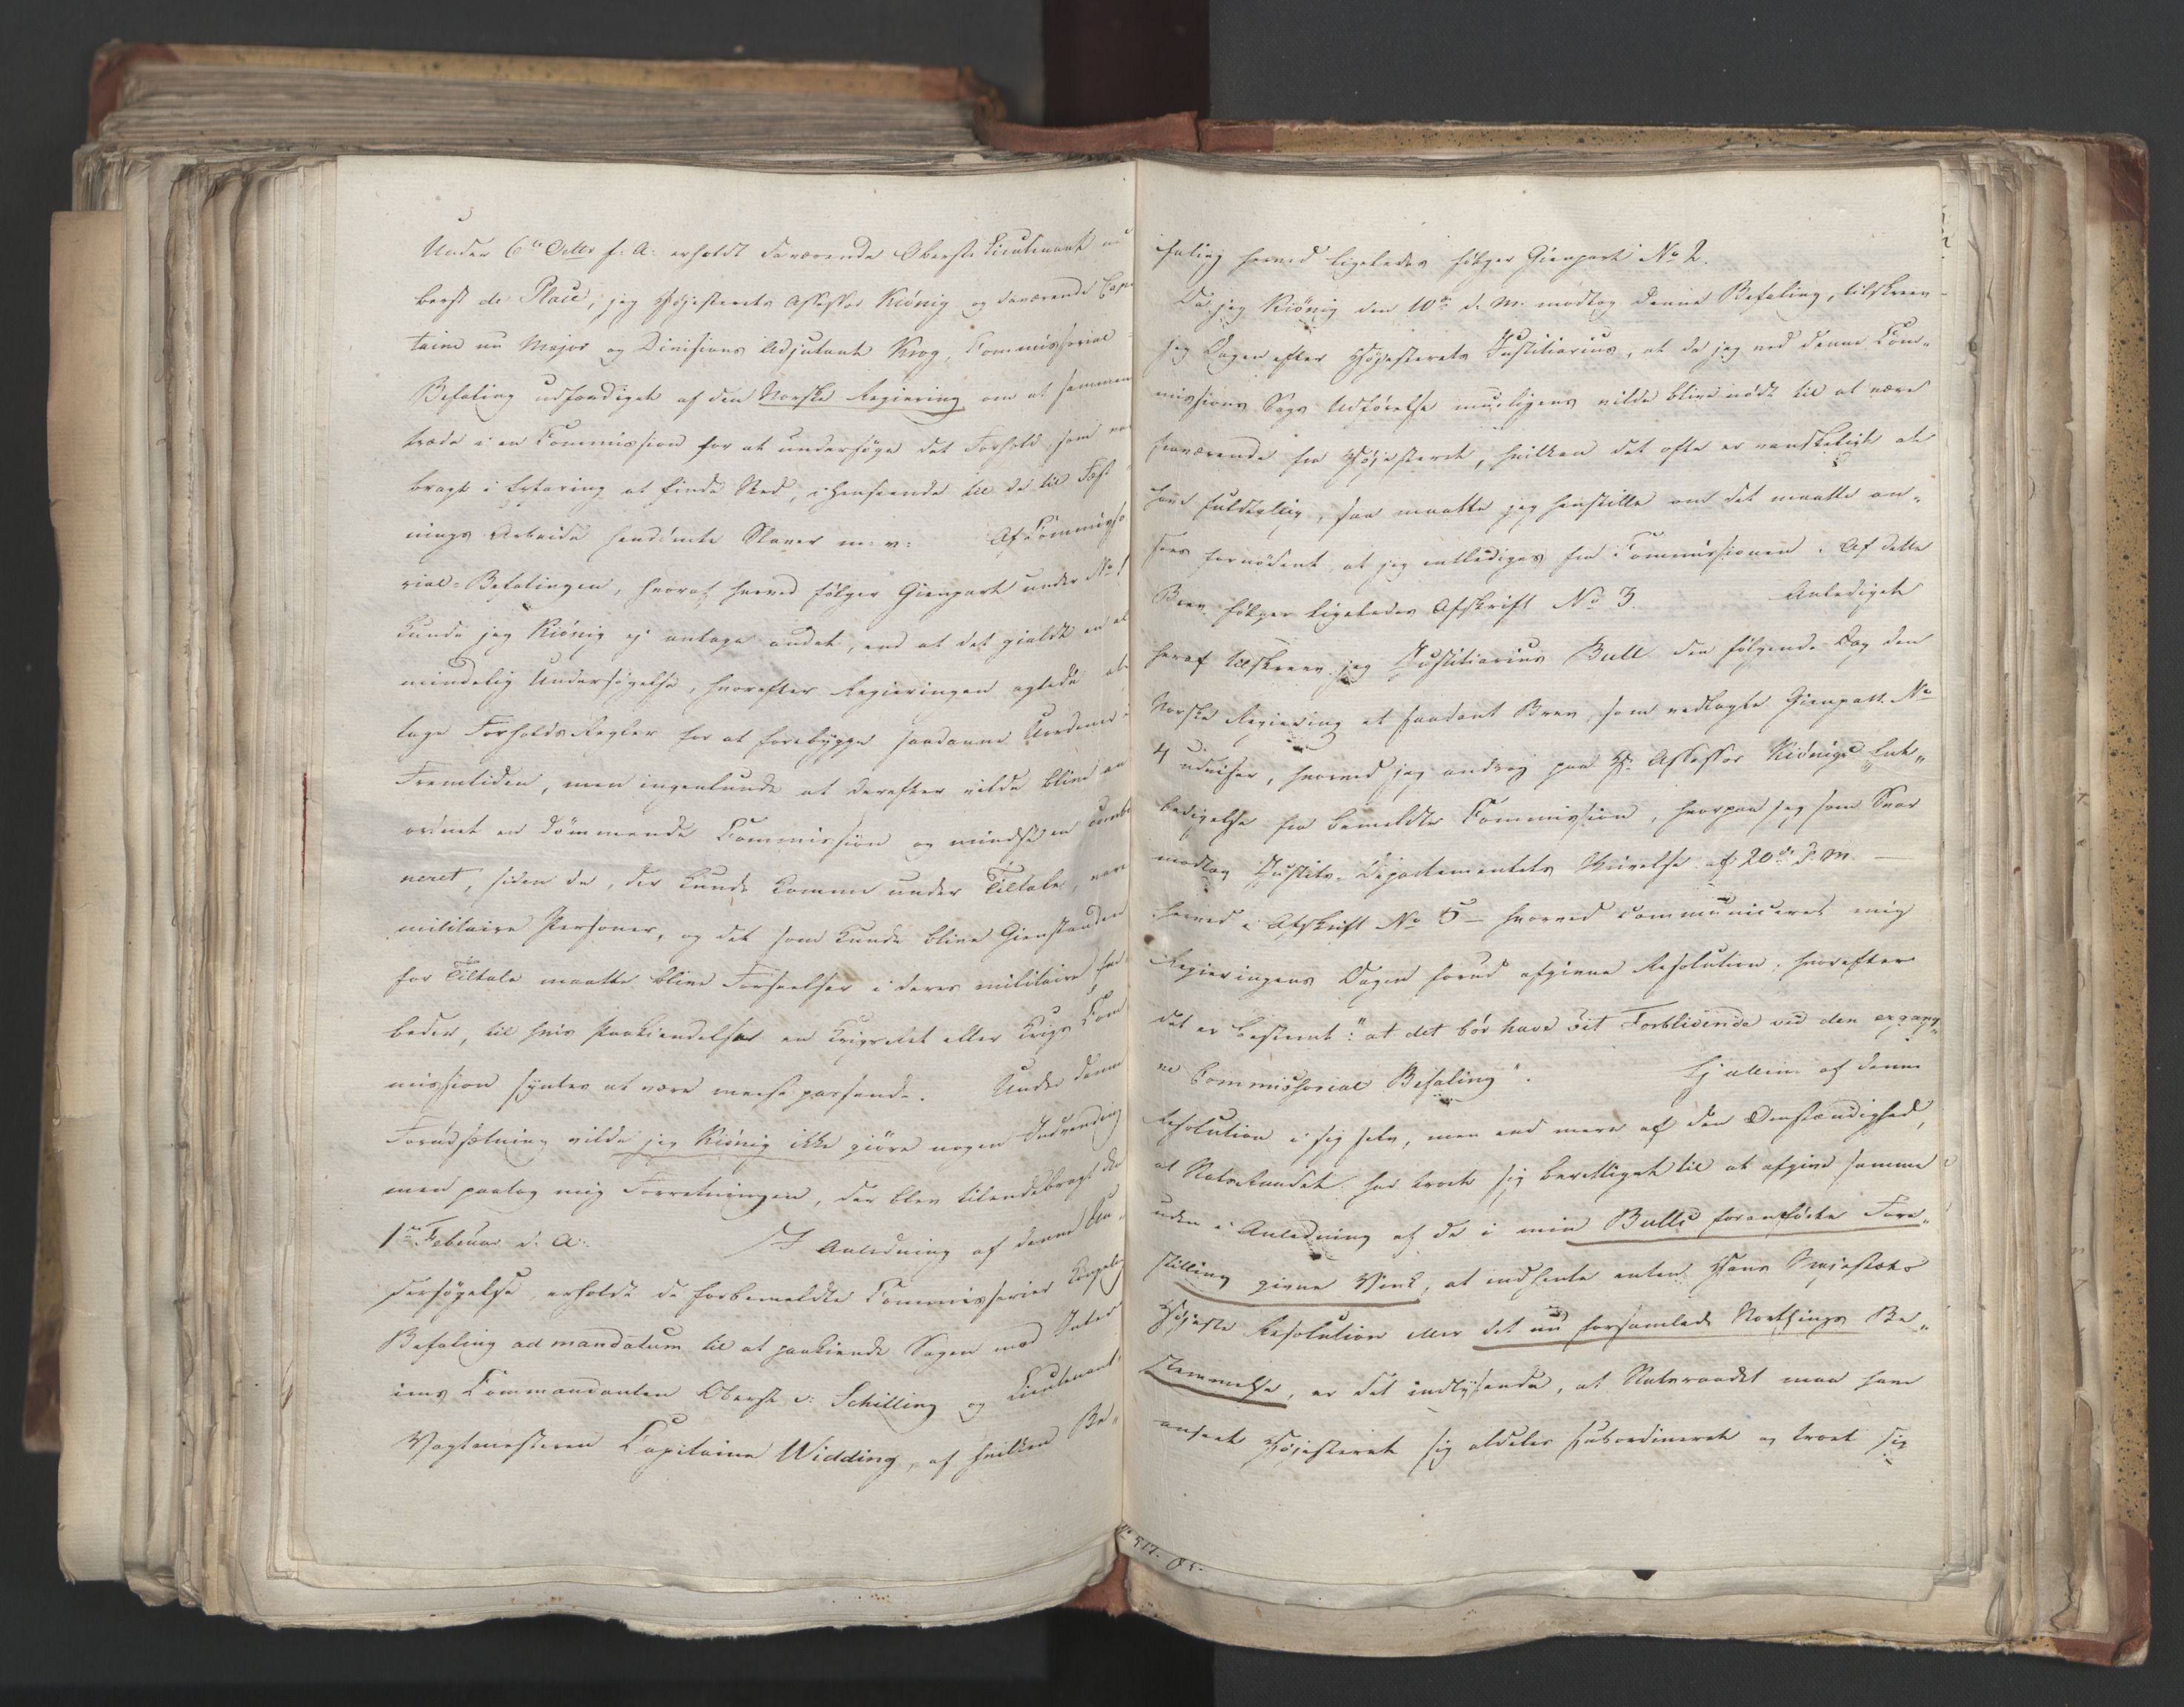 Under 6te Octbr f. A. erholdt daværende Oberste Lieutenant nu
berst de Place, jeg Højesterets Assessor Kiönig og daværende Cap
taine nu Major og Divisions Adjutant Krog, Commissorial
Befaling udfærdiget af den Norske Regiering om at sammen
træde i en Commission for at undersöge det Forhold som var
bragt i Erfaring at finde Sted, i Henseende til de til Fæst
nings Arbeide hendömte Slaver m: v: Af Commisso
rial-Befalingen, hvoraf herved fölger Gienpart under No 1
kunde jeg Kiönig ej antage andet, end at det gialdt en al
mindelig Undersögelse, hvorefter Regieringen agtede at
tage Forholds Regler for at forebygge saadanne Uordener i
Fremtiden, men ingenlunde at derefter vilde blive an
ordnet en dömmende Commission og mindst en combi
neret, siden de, der kunde komme under Tiltale, vare
militaire Personer, og det som kunde blive Gienstanden
for Tiltale maatte blive Forseelser i deres militaire Em
beder, til hvis Paakiendelse en Krigsret eller Krigs Com
mission syntes at være meest passende. Under denne
Forudsætning vilde jeg Kiönig ikke giöre nogen Indvending
men paatog mig Forretningen, der blev tilendebragt den
1ste Februar d. A. I Anledning af denne Un„
dersögelse erholdt de forbemeldte Commisserier Kongelig
Befaling ad mandatum til at paakiende Sagen mod Inter
ims Commandanten Oberst v: Schilling og Lieutenant
Vagtmesteren Capitaine Widding, af hvilken Be„
faling herved ligeledes fölger Gienpart No 2.
Da jeg Kiönig den 10de d. M. modtog denne Befaling, tilskrev
jeg Dagen efter Höjesterets Justitiarius, at da jeg ved denne Com„
missions Sags Udförelse mueligens vilde blive nödt til at være
fraværende fra Höjesteret, hvilken det ofte er vanskeligt at
have fuldtallig, saa maatte jeg henstille om det maatte an„
sees fornödent, at jeg entlediges fra Commissionen. Af dette
Brev fölger ligeledes Afskrift No 3. Anlediget
heraf tilskrev jeg Justitiarius Bull den fölgende Dag den
Norske Regiering et saadant Brev, som vedlagte Gienpart No
4 udviser, hvorved jeg androg paa Hr. Assessor Kiönigs Ent„
ledigelse fra bemeldte Commission, hvorpaa jeg som Svar
modtog Justits-Departementets Skrivelse af 20de d. M. —
herved i Afskrift No 5 — hvorved communiceres mig
Regieringens Dagen forud afgivne Resolution, hvorefter
det er bestemt: "at det bör have sit Forblivende ved den ergang„
ne Commissorial Befaling". Ej allene af denne
Resolution i sig selv, men end mere af den Omstændighed,
at Statsraadet har troet sig berettiget til at afgive samme
uden i Anledning af de i min Bulls foranförte Fore„
stilling givne Vink, at indhente enten Hans Majestæts
Höjeste Resolution eller det nu forsamlede Storthings Be„
stemmelse, er det indlysende, at Statsraadet maa have
anseet Höjesteret sig aldeles subordineret og troet sig